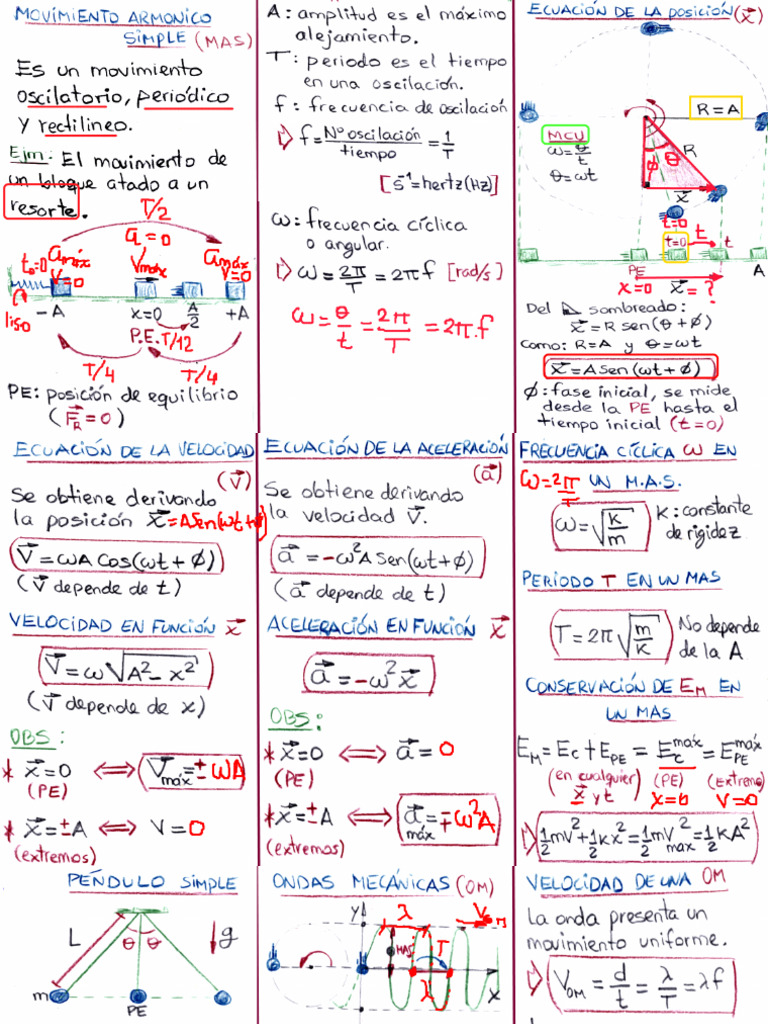 MOVIMIENTO ARMONICO
SIMPLE (MAS)
Es un movimiento
oscilatorio, periódico
y rectilineo.
Ejm: El movimiento de
un bloque atado a un
resorte.
T/2
a = 0
amáx
V=0
t₀=0
Vmáx
amáx
V=0
liso
-A
x=0
A/2
+A
P.E.
T/12
T/4
T/4
PE: posición de equilibrio
(F⃗R = 0)
A: amplitud es el máximo
alejamiento.
T: periodo es el tiempo
en una oscilación.
f: frecuencia de oscilación
f = Nº oscilación/tiempo = 1/T
[s⁻¹ = hertz (Hz)]
ω: frecuencia cíclica
o angular.
ω = 2π/T = 2πf [rad/s]
ω = θ/t = 2π/T = 2π.f
ECUACIÓN DE LA POSICIÓN (x⃗)
R = A
MCU
ω = θ/t
θ = ωt
R
ϕ
θ
x⃗
t=0
t=0
t
t
PE
A
x=0
x⃗ = ?
Del ◺ sombreado:
x⃗ = R sen(θ+ϕ)
como: R=A y θ=ωt
x⃗ = A Sen(ωt+ϕ)
ϕ: fase inicial, se mide
desde la PE hasta el
tiempo inicial (t=0)
ECUACIÓN DE LA VELOCIDAD
(v⃗)
Se obtiene derivando
la posición x⃗ = A Sen(ωt+ϕ)
V⃗ = ωA Cos(ωt+ϕ)
(V⃗ depende de t)
VELOCIDAD EN FUNCIÓN x⃗
V⃗ = ω√(A² - x²)
(V⃗ depende de x)
OBS:
* x⃗=0 ⟺ V⃗máx = ±ωA
(PE)
* x⃗=±A ⟺ V=0
(extremos)
ECUACIÓN DE LA ACELERACIÓN
(a⃗)
Se obtiene derivando
la velocidad V⃗.
a⃗ = -ω²A Sen(ωt+ϕ)
(a⃗ depende de t)
ACELERACIÓN EN FUNCIÓN x⃗
a⃗ = -ω²x⃗
OBS:
* x⃗=0 ⟺ a⃗=0
(PE)
* x⃗=±A ⟺ a⃗máx = ∓ω²A
(extremos)
FRECUENCIA CÍCLICA ω EN
ω = 2π/T UN M.A.S.
ω = √(K/m) K: constante
de rigidez
PERIODO T EN UN MAS
T = 2π√(m/K) No depende
de la A
CONSERVACIÓN DE EM EN
UN MAS
EM = Ec + EPE = Ecmáx = EPEmáx
(en cualquier x⃗ y t) (PE) (Extremo)
X=0 V=0
½mV² + ½Kx² = ½mVmax² = ½KA²
PÉNDULO SIMPLE
L
θ
θ
g⃗
m
PE
ONDAS MECÁNICAS (OM)
y
λ
VOM
MAS
T
λ
X
VELOCIDAD DE UNA OM
La onda presenta un
movimiento uniforme.
VOM = d/t = λ/T = λf